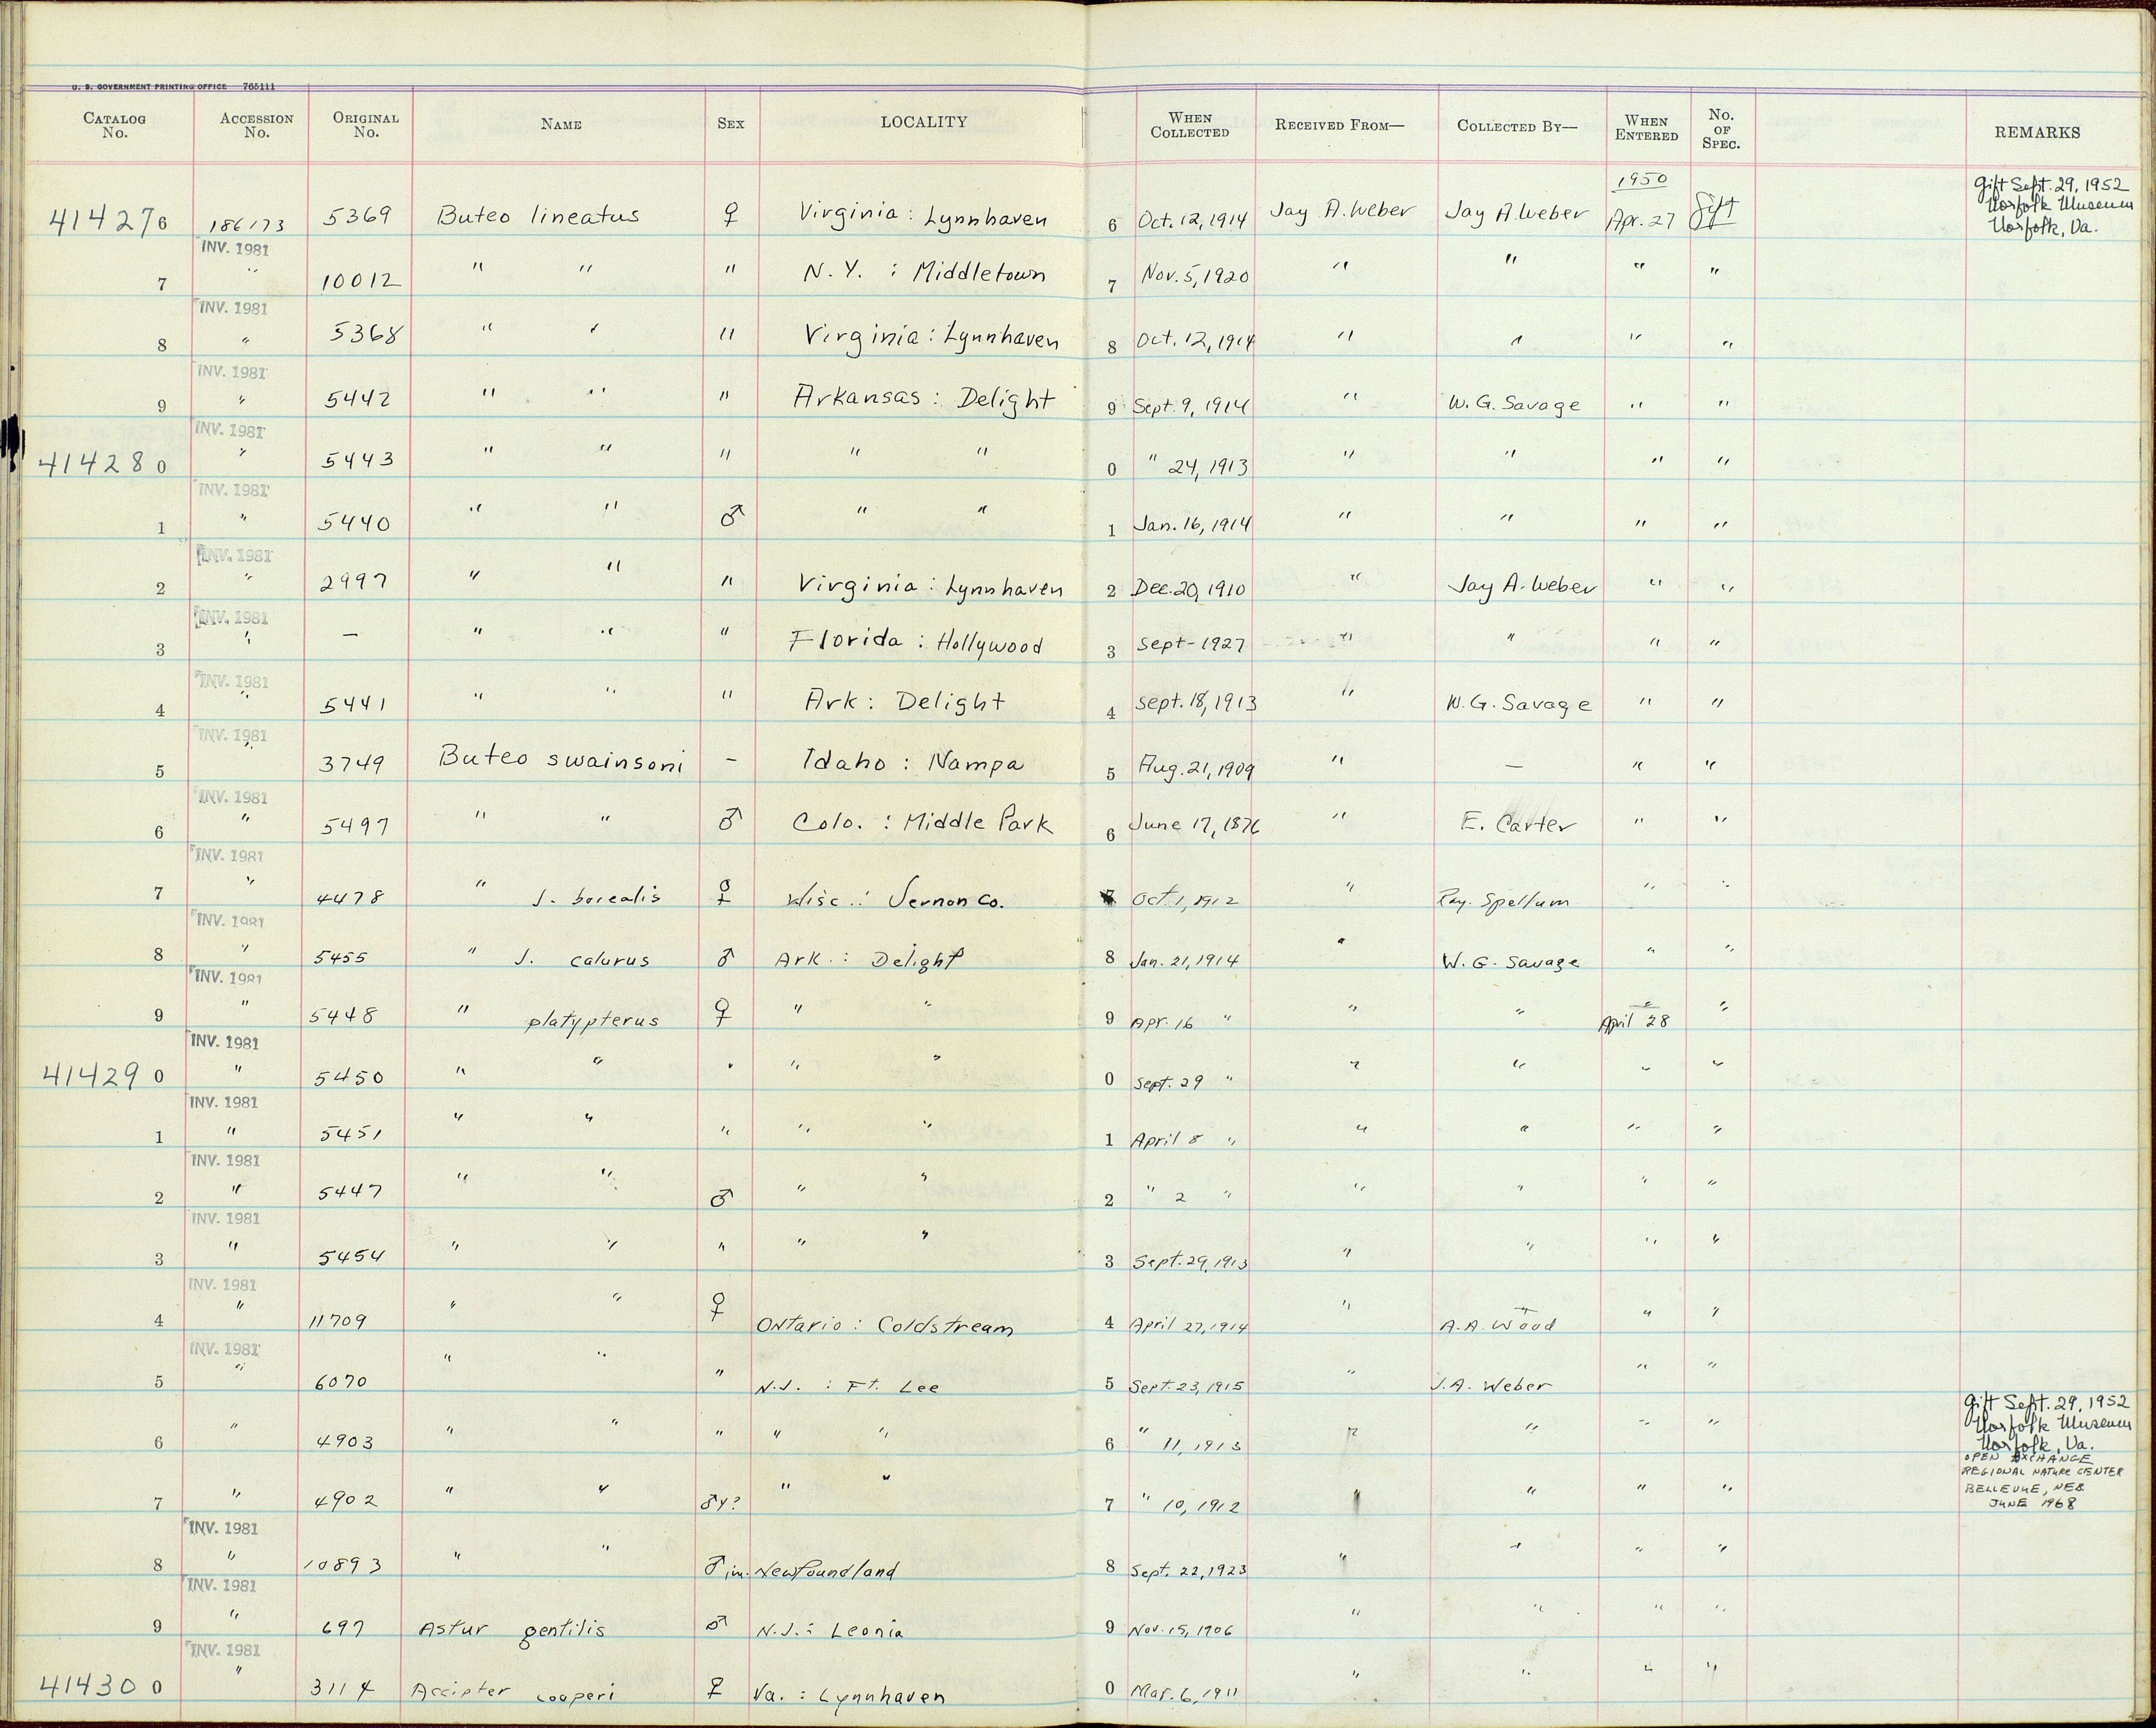 U. S. GOVERNMENT PRINTING OFFICE 765111
CATALOG No. ACCESSION No. ORIGINAL No. NAME SEX LOCALITY WHEN COLLECTED RECEIVED FROM— COLLECTED BY— WHEN ENTERED No. OF SPEC. REMARKS
1950
Gift Sept. 29, 1952
Norfolk Museum
Norfolk, Va.
414276 186173 5369 Buteo lineatus ♀ Virginia : Lynnhaven 6 Oct. 12, 1914 Jay A. Weber Jay A. Weber Apr. 27 Gift
INV. 1981
7 " 10012 " " " N. Y. : Middletown 7 Nov. 5, 1920 " " " "
INV. 1981
8 " 5368 " " " Virginia : Lynnhaven 8 Oct. 12, 1914 " " " "
INV. 1981
9 " 5442 " " " Arkansas : Delight 9 Sept. 9, 1914 " W. G. Savage " "
INV. 1981
414280 " 5443 " " " " " 0 " 24, 1913 " " " "
INV. 1981
1 " 5440 " " ♂ " " 1 Jan. 16, 1914 " " " "
INV. 1981
2 " 2997 " " " Virginia : Lynnhaven 2 Dec. 20, 1910 " Jay A. Weber " "
INV. 1981
3 " — " " " Florida : Hollywood 3 Sept - 1927 " " " "
INV. 1981
4 " 5441 " " " Ark : Delight 4 Sept. 18, 1913 " W. G. Savage " "
INV. 1981
5 " 3749 Buteo swainsoni – Idaho : Nampa 5 Aug. 21, 1909 " — " "
INV. 1981
6 " 5497 " " ♂ Colo. : Middle Park 6 June 17, 1876 " E. Carter " "
INV. 1981
7 " 4478 " J. borealis ♀ Wisc. : Vernon Co. 7 Oct. 1, 1912 " Ray. Spellum " "
INV. 1981
8 " 5455 " J. calurus ♂ Ark. : Delight 8 Jan. 21, 1914 " W. G. Savage " "
INV. 1981
9 " 5448 " platypterus ♀ " " 9 Apr. 16 " " " April 28 "
INV. 1981
414290 " 5450 " " " " " 0 Sept. 29 " " " " "
INV. 1981
1 " 5451 " " " " " 1 April 8 " " " " "
INV. 1981
2 " 5447 " " ♂ " " 2 " 2 " " " " "
INV. 1981
3 " 5454 " " " " " 3 Sept. 29, 1913 " " " "
INV. 1981
4 " 11709 " " ♀ Ontario : Coldstream 4 April 27, 1914 " A. A. Wood " "
INV. 1981
5 " 6070 " " " N.J. : Ft. Lee 5 Sept. 23, 1915 " J. A. Weber " "
6 " 4903 " " " " " 6 " 11, 1913 " " " "
Gift Sept. 29, 1952
Norfolk Museum
Norfolk, Va.
7 " 4902 " " ♂y? " " 7 " 10, 1912 " " " "
OPEN EXCHANGE
REGIONAL NATURE CENTER
BELLEVUE, NEB
JUNE 1968
INV. 1981
8 " 10893 " " ♂ im. Newfoundland 8 Sept. 22, 1923 " " " "
INV. 1981
9 " 697 Astur gentilis ♂ N.J. : Leonia 9 Nov. 15, 1906 " " " "
INV. 1981
414300 " 3114 Accipter cooperi ♀ Va. : Lynnhaven 0 Mar. 6, 1911 " " " "